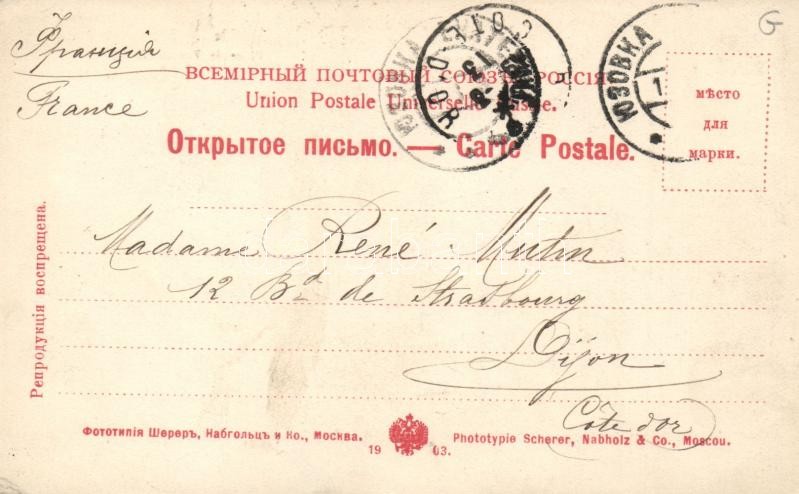 Франція
France
ВСЕМІРНЫЙ ПОЧТОВЫЙ СОЮЗЪ РОССІЯ
Union Postale Universelle Russie.
Открытое письмо. — Carte Postale.
ЮЗОВКА
1
COTE-D'OR
мѣсто
для
марки.
G
Madame René Mutin
12 Bd de Strasbourg
Dijon
Côte d'or
Репродукція воспрещена.
Фототипія Шереръ, Набгольцъ и Ко., Москва.
1903.
Phototypie Scherer, Nabholz & Co., Moscou.